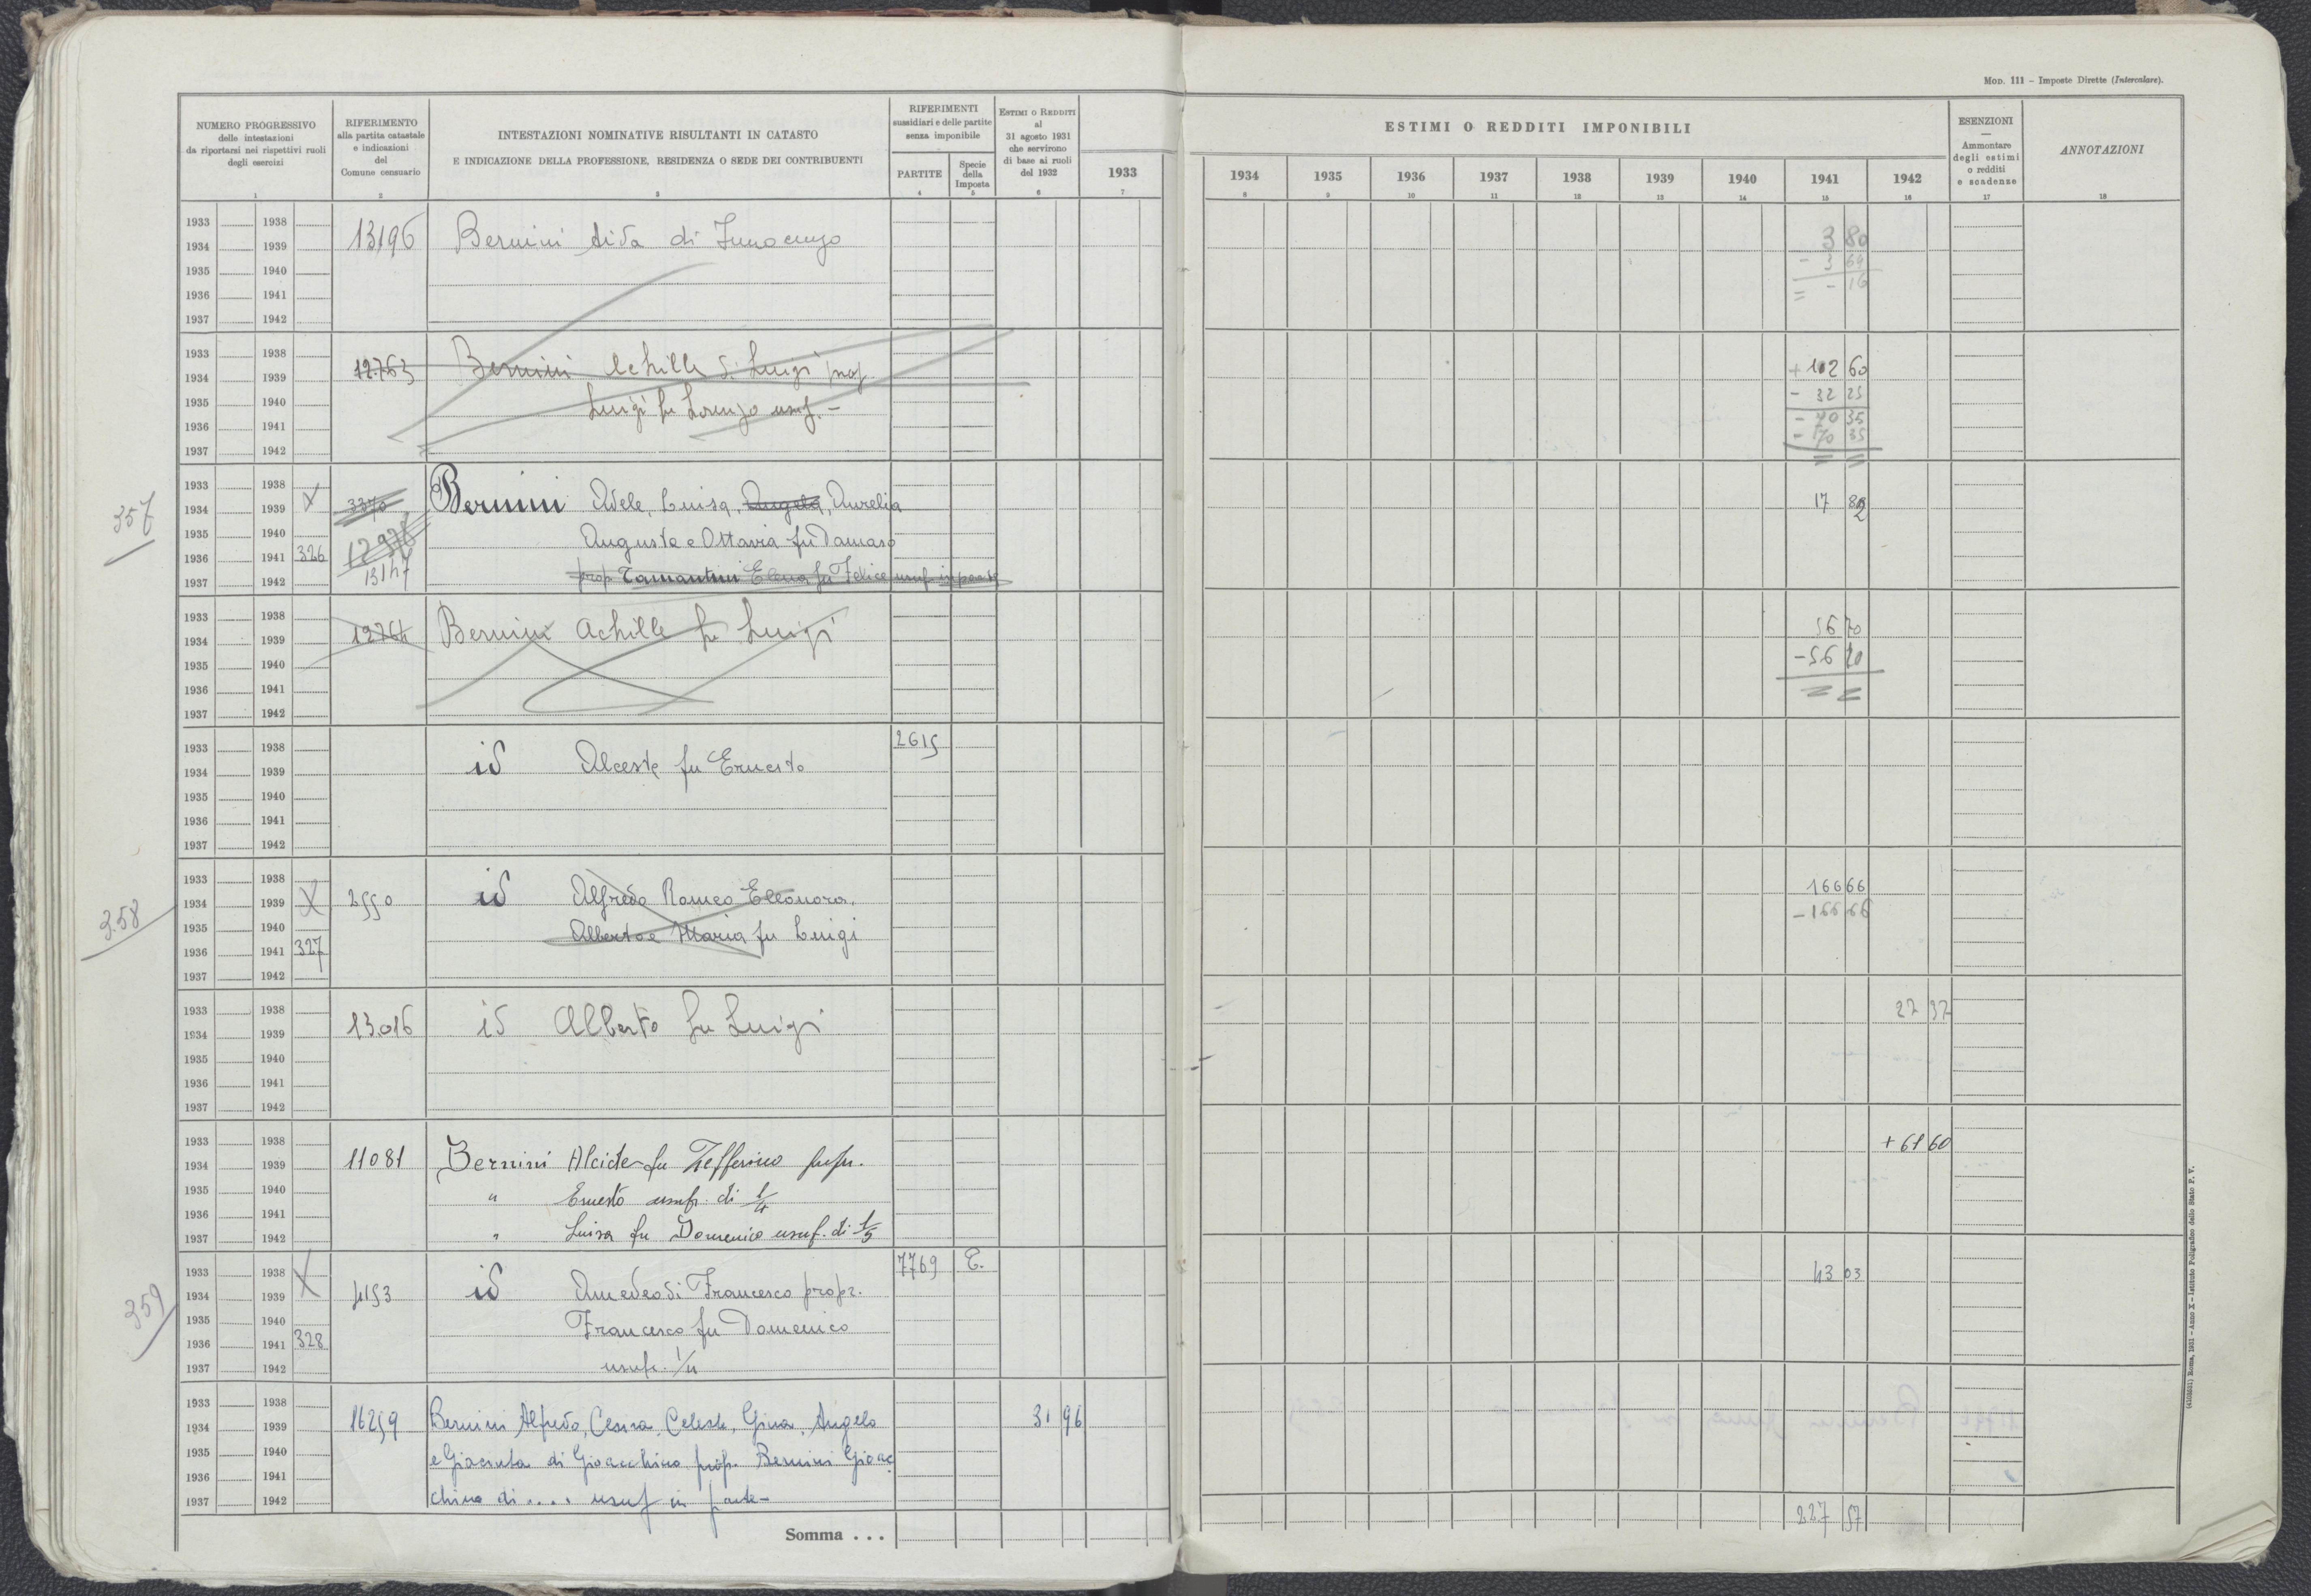 Mod. 111 – Imposte Dirette (Intercalare).
NUMERO PROGRESSIVO
delle intestazioni
da riportarsi nei rispettivi ruoli
degli esercizi
1
RIFERIMENTO
alla partita catastale
e indicazioni
del
Comune censuario
2
INTESTAZIONI NOMINATIVE RISULTANTI IN CATASTO
E INDICAZIONE DELLA PROFESSIONE, RESIDENZA O SEDE DEI CONTRIBUENTI
3
RIFERIMENTI
sussidiari e delle partite
senza imponibile
PARTITE
4
Specie
della
Imposta
5
Estimi o Redditi
al
31 agosto 1931
che servirono
di base ai ruoli
del 1932
6
1933
7
ESTIMI O REDDITI IMPONIBILI
1934 1935 1936 1937 1938 1939 1940 1941 1942
8 9 10 11 12 13 14 15 16
ESENZIONI
—
Ammontare
degli estimi
o redditi
e scadenze
17
ANNOTAZIONI
18
1933 1938
1934 1939 13196 Bernini Lida di Innocenzo 3 80
1935 1940 - 3 64
1936 1941 = - 16
1937 1942
1933 1938
1934 1939 12763 Bernini Achille di Luigi prop. + 102 60
1935 1940 Luigi fu Lorenzo usuf. – - 32 25
1936 1941 - 70 35
1937 1942 - 70 35
1933 1938 X
357 1934 1939 3370 Bernini Adele, Luisa, Angela, Aurelia 17 82
1935 1940 Augusta e Ottavia fu Damaso
1936 1941 326
1937 1942 13147 prop. Tamantini Elena fu Felice usuf. in parte
1933 1938
1934 1939 12764 Bernini Achille fu Luigi 56 70
1935 1940 - 56 70
1936 1941
1937 1942
1933 1938 2615
1934 1939 id Alceste fu Ernesto
1935 1940
1936 1941
1937 1942
1933 1938 166 66
358 1934 1939 X 2550 id Alfredo Romeo Eleonora, - 166 66
1935 1940 Alberto e Maria fu Luigi
1936 1941 327
1937 1942
1933 1938 27 37
1934 1939 13.016 id Alberto fu Luigi
1935 1940
1936 1941
1937 1942
1933 1938 + 61 60
1934 1939 11081 Bernini Alcide fu Zefferino
1935 1940 " Ernesto usufr. di 1/4
1936 1941
1937 1942 " Luisa fu Domenico usuf. di 1/3
1933 1938 X 7769 E. 43 03
359 1934 1939 4153 id Amedeo di Francesco propr.
1935 1940 Francesco fu Domenico
1936 1941 328
1937 1942 usufr. 1/4
1933 1938
1934 1939 16259 Bernini Alfredo, Cesira, Celeste, Gina, Angelo 31 96
1935 1940 e Giacinta di Gioacchino prop. Bernini Gioac
1936 1941
1937 1942 chino di .... usuf in parte –
Somma . . . 227 57
(4103231) Roma, 1931 – Anno X – Istituto Poligrafico dello Stato P. V.